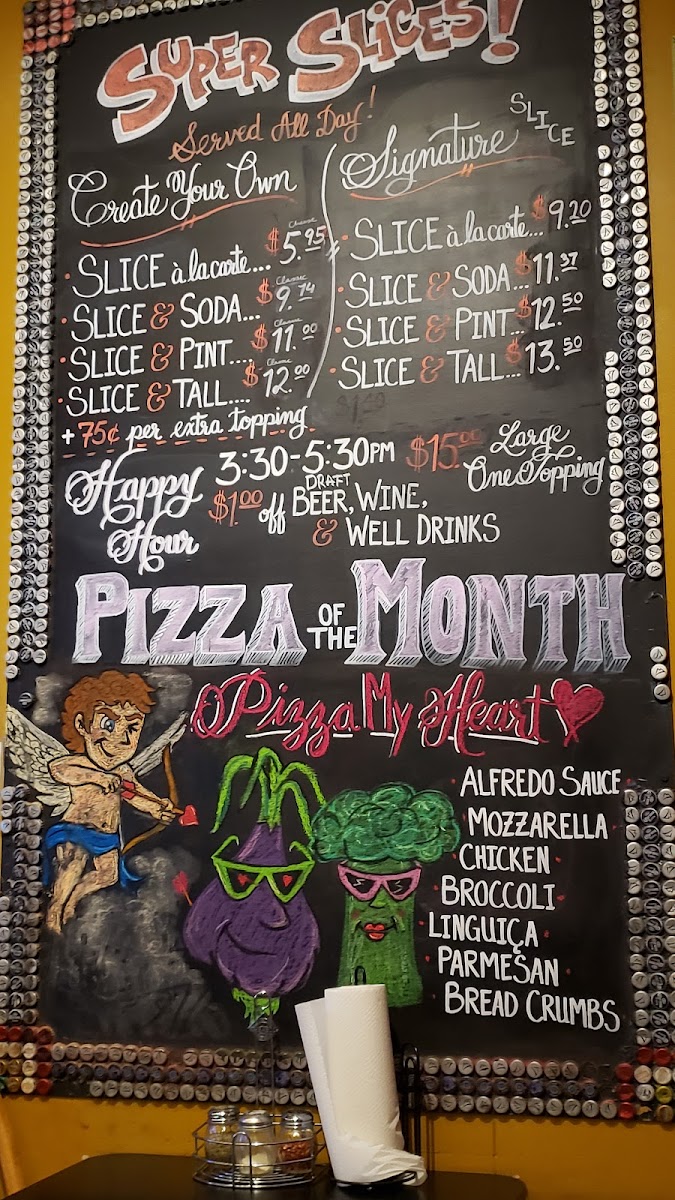 SUPER SLICES!
Served All Day!
Create Your Own
SLICE à la carte... Classic $5.95
SLICE & SODA... Classic $9.74
SLICE & PINT.... Classic $11.00
SLICE & TALL.... Classic $12.00
+ 75¢ per extra topping
Signature SLICE
SLICE à la carte... $9.20
SLICE & SODA... $11.37
SLICE & PINT... $12.50
SLICE & TALL... $13.50
Happy Hour
3:30-5:30PM
$1.00 off DRAFT BEER, WINE,
& WELL DRINKS
$15.00 Large
One Topping
PIZZA OF THE MONTH
Pizza My Heart
ALFREDO SAUCE
MOZZARELLA
CHICKEN
BROCCOLI
LINGUIÇA
PARMESAN
BREAD CRUMBS